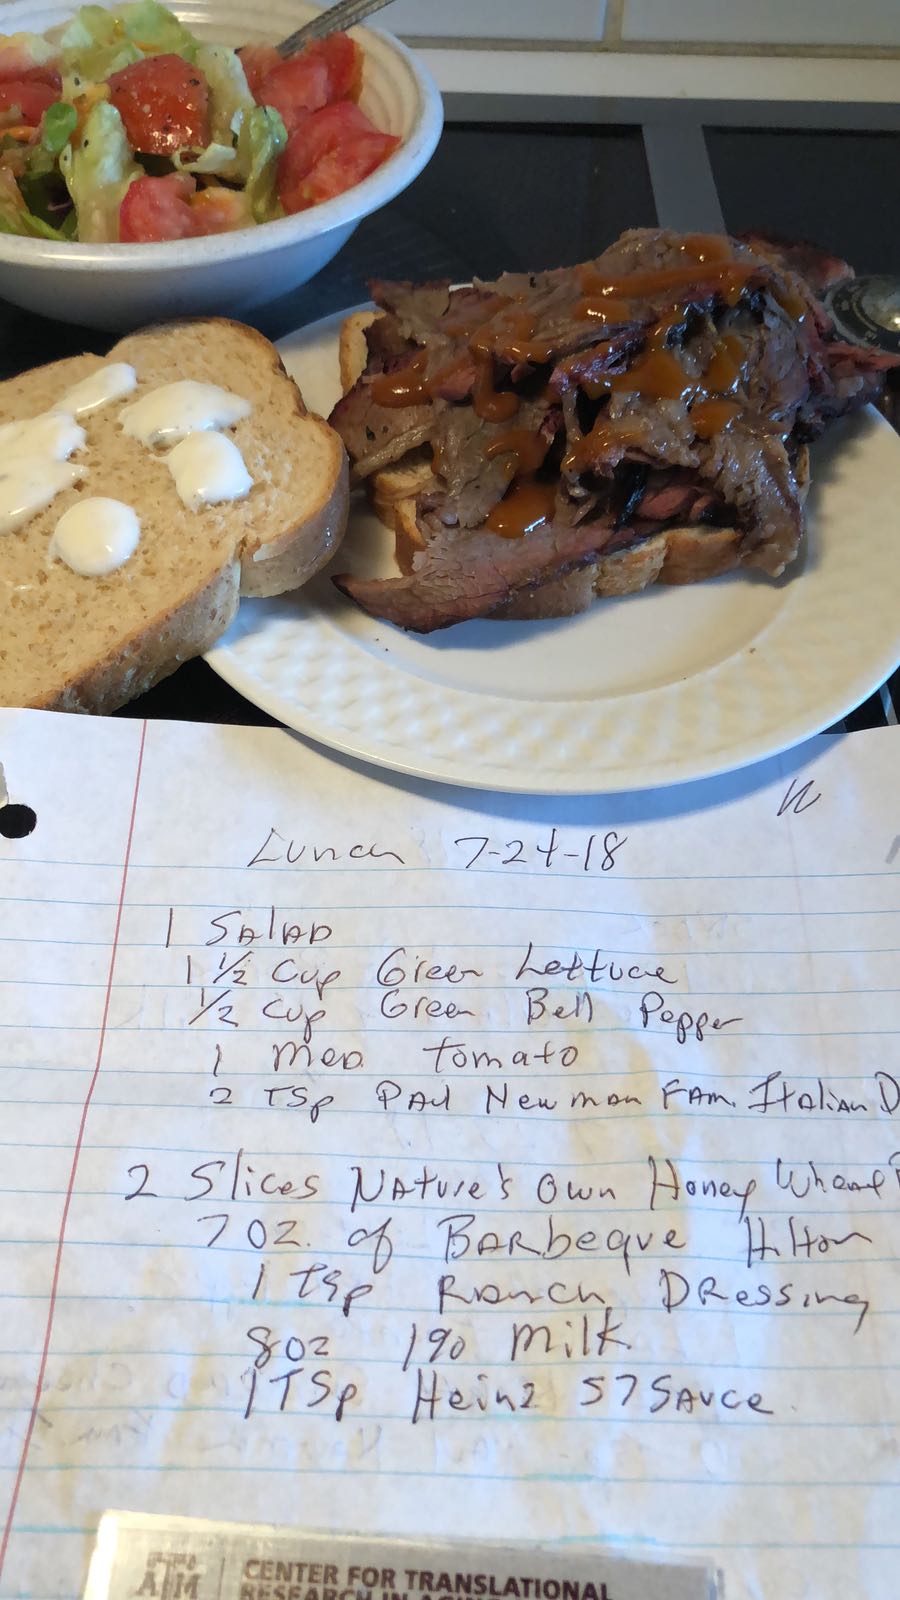 Lunch 7-24-18
1 Salad
1 1/2 Cup Green Lettuce
1/2 Cup Green Bell Pepper
1 Med Tomato
2 TSp Paul Newman Fam. Italian D
2 Slices Nature's Own Honey Wheat
7 oz. of Barbeque
1 TSp Ranch Dressing
8oz 1% Milk
1 TSp Heinz 57 Sauce
ATM CENTER FOR TRANSLATIONAL
RESEARCH IN AGING